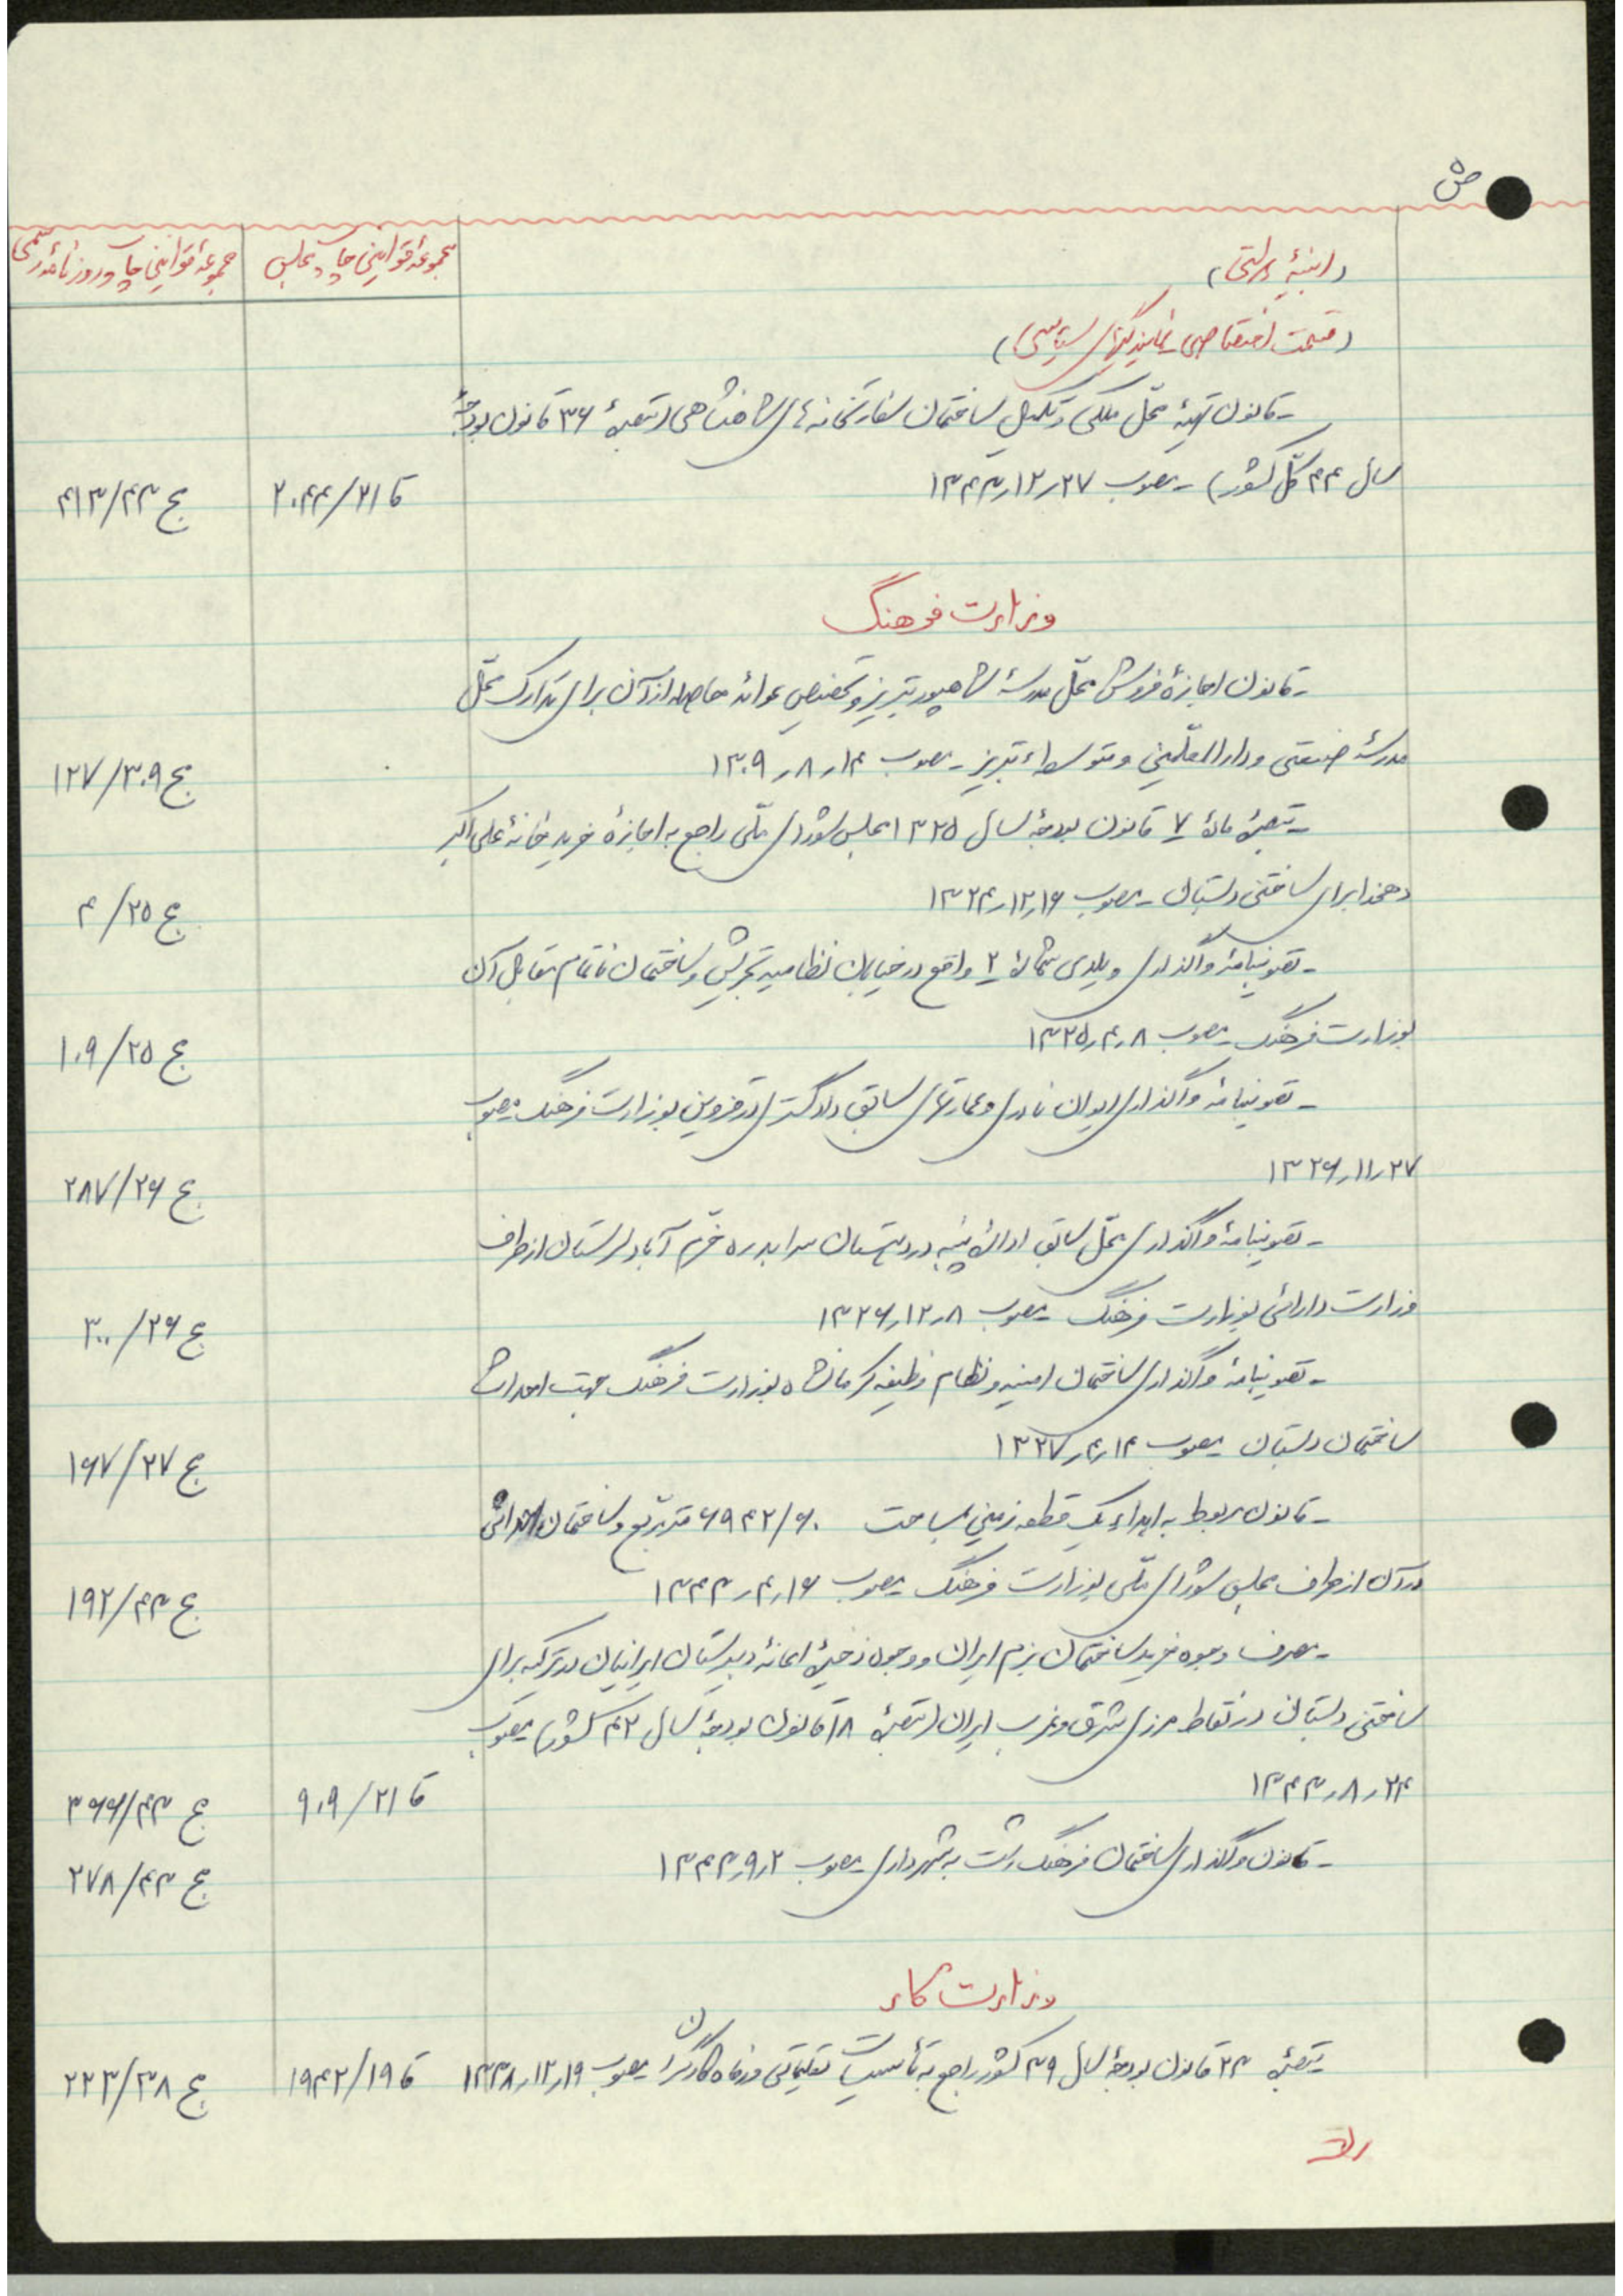 ص ۵
(ابنیهٔ دولتی)
مجموعهٔ قوانین چاپ مجلس
مجموعهٔ قوانین چاپ روزنامهٔ رسمی
(قسمت اختصاصی نمایندگیهای سیاسی)
- قانون تهیهٔ محل ملکی و تکمیل ساختمان سفارتخانه‌های شاهنشاهی (تبصرهٔ ۳۶ قانون بودجهٔ
سال ۴۴ کلّ کشور) - مصوب ۲۷ر۱۲ر۱۳۴۳
قا ۲۱/۲۰۴۴
ج ۴۳/۴۱۳
وزارت فرهنگ
- قانون اجازهٔ فروش محلّ مدرسهٔ شاهپور تبریز و تخصیص عوائد حاصله از آن برای تدارک محلّ
مدرسهٔ صنعتی و دارالمعلّمین و متوسطهٔ تبریز - مصوب ۱۴ر۸ر۱۳۰۹
ج ۳۰۹/۱۲۷
- تبصرهٔ مادهٔ ۷ قانون بودجهٔ سال ۱۳۲۵ مجلس شورای ملّی راجع به اجازهٔ خرید خانهٔ علی اکبر
دهخدا برای ساختن دبستان - مصوب ۱۶ر۱۲ر۱۳۲۴
ج ۲۵/۴
- تصویبنامهٔ واگذاری ویلای شمارهٔ ۲ واقع در خیابان نظامیه تجریش و ساختمان ناتمام مقابل آن
بوزارت فرهنگ - مصوب ۸ر۴ر۱۳۲۵
ج ۲۵/۱۰۹
- تصویبنامهٔ واگذاری ایوان نادری و عمارتهای سابق دادگستری در قزوین بوزارت فرهنگ - مصوب
۲۷ر۱۱ر۱۳۲۶
ج ۲۶/۲۸۷
- تصویبنامهٔ واگذاری محلّ سابق ادارهٔ پنبه در خرّم آباد لرستان از طرف
وزارت دارائی بوزارت فرهنگ - مصوب ۸ر۱۲ر۱۳۲۶
ج ۲۶/۳۰۰
- تصویبنامهٔ واگذاری ساختمان امنیه و نظام وظیفه کرمانشاه بوزارت فرهنگ جهت احداث
ساختمان دبستان - مصوب ۱۴ر۴ر۱۳۲۷
ج ۲۷/۱۶۷
- قانون مربوط به اهداء یک قطعه زمین بمساحت ۶۹۴۲/۶۰ متر مربّع و ساختمان احداثی
در آن از طرف مجلس شورای ملّی بوزارت فرهنگ - مصوب ۱۶ر۴ر۱۳۴۳
ج ۴۳/۱۹۲
- مصرف وجوه خرید ساختمان بزم ایران و وجوه ذخیرهٔ اعانهٔ دبیرستان ایرانیان در ترکیه برای
ساختن دبستان در نقاط مرزی شرق و غرب ایران (تبصرهٔ ۱۸ قانون بودجهٔ سال ۴۲ کشور) مصوب
۲۴ر۸ر۱۳۴۳
قا ۲۱/۹۰۹
ج ۴۳/۳۶۶
- قانون واگذاری ساختمان فرهنگ رشت به شهرداری - مصوب ۲ر۹ر۱۳۴۳
ج ۴۳/۲۷۸
وزارت کار
- تبصرهٔ ۲۳ قانون بودجهٔ سال ۳۹ کشور راجع به تأسیسات تعلیماتی و رفاه کارگران مصوب ۱۹ر۱۲ر۱۳۳۸
قا ۱۹/۱۹۴۲
ج ۳۸/۲۲۳